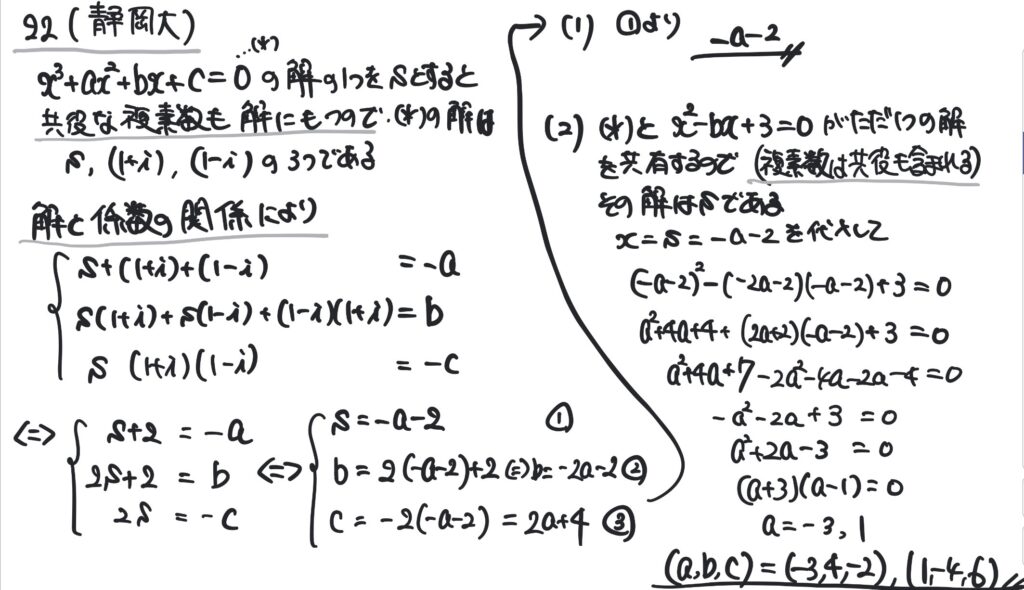 22 (静岡大)
x³+ax²+bx+c=0 …(*) の解の1つをsとすると
共役な複素数も解にもつので、(*)の解は
s, (1+i), (1-i) の3つである
解と係数の関係により
s+(1+i)+(1-i) = -a
s(1+i)+s(1-i)+(1-i)(1+i) = b
s (1+i)(1-i) = -c
⇔ { s+2 = -a
2s+2 = b
2s = -c
⇔ { s = -a-2 ①
b = 2(-a-2)+2 ⇔ b=-2a-2 ②
c = -2(-a-2) = 2a+4 ③
(1) ①より -a-2
(2) (*)と x²-bx+3=0 がただ1つの解
を共有するので (複素数は共役も含まれる)
その解はsである
x=s=-a-2を代入して
(-a-2)²-(-2a-2)(-a-2)+3=0
a²+4a+4+(2a+2)(-a-2)+3=0
a²+4a+7-2a²-4a-2a-4=0
-a²-2a+3=0
a²+2a-3=0
(a+3)(a-1)=0
a=-3, 1
(a,b,c)=(-3,4,-2), (1,-4,6)